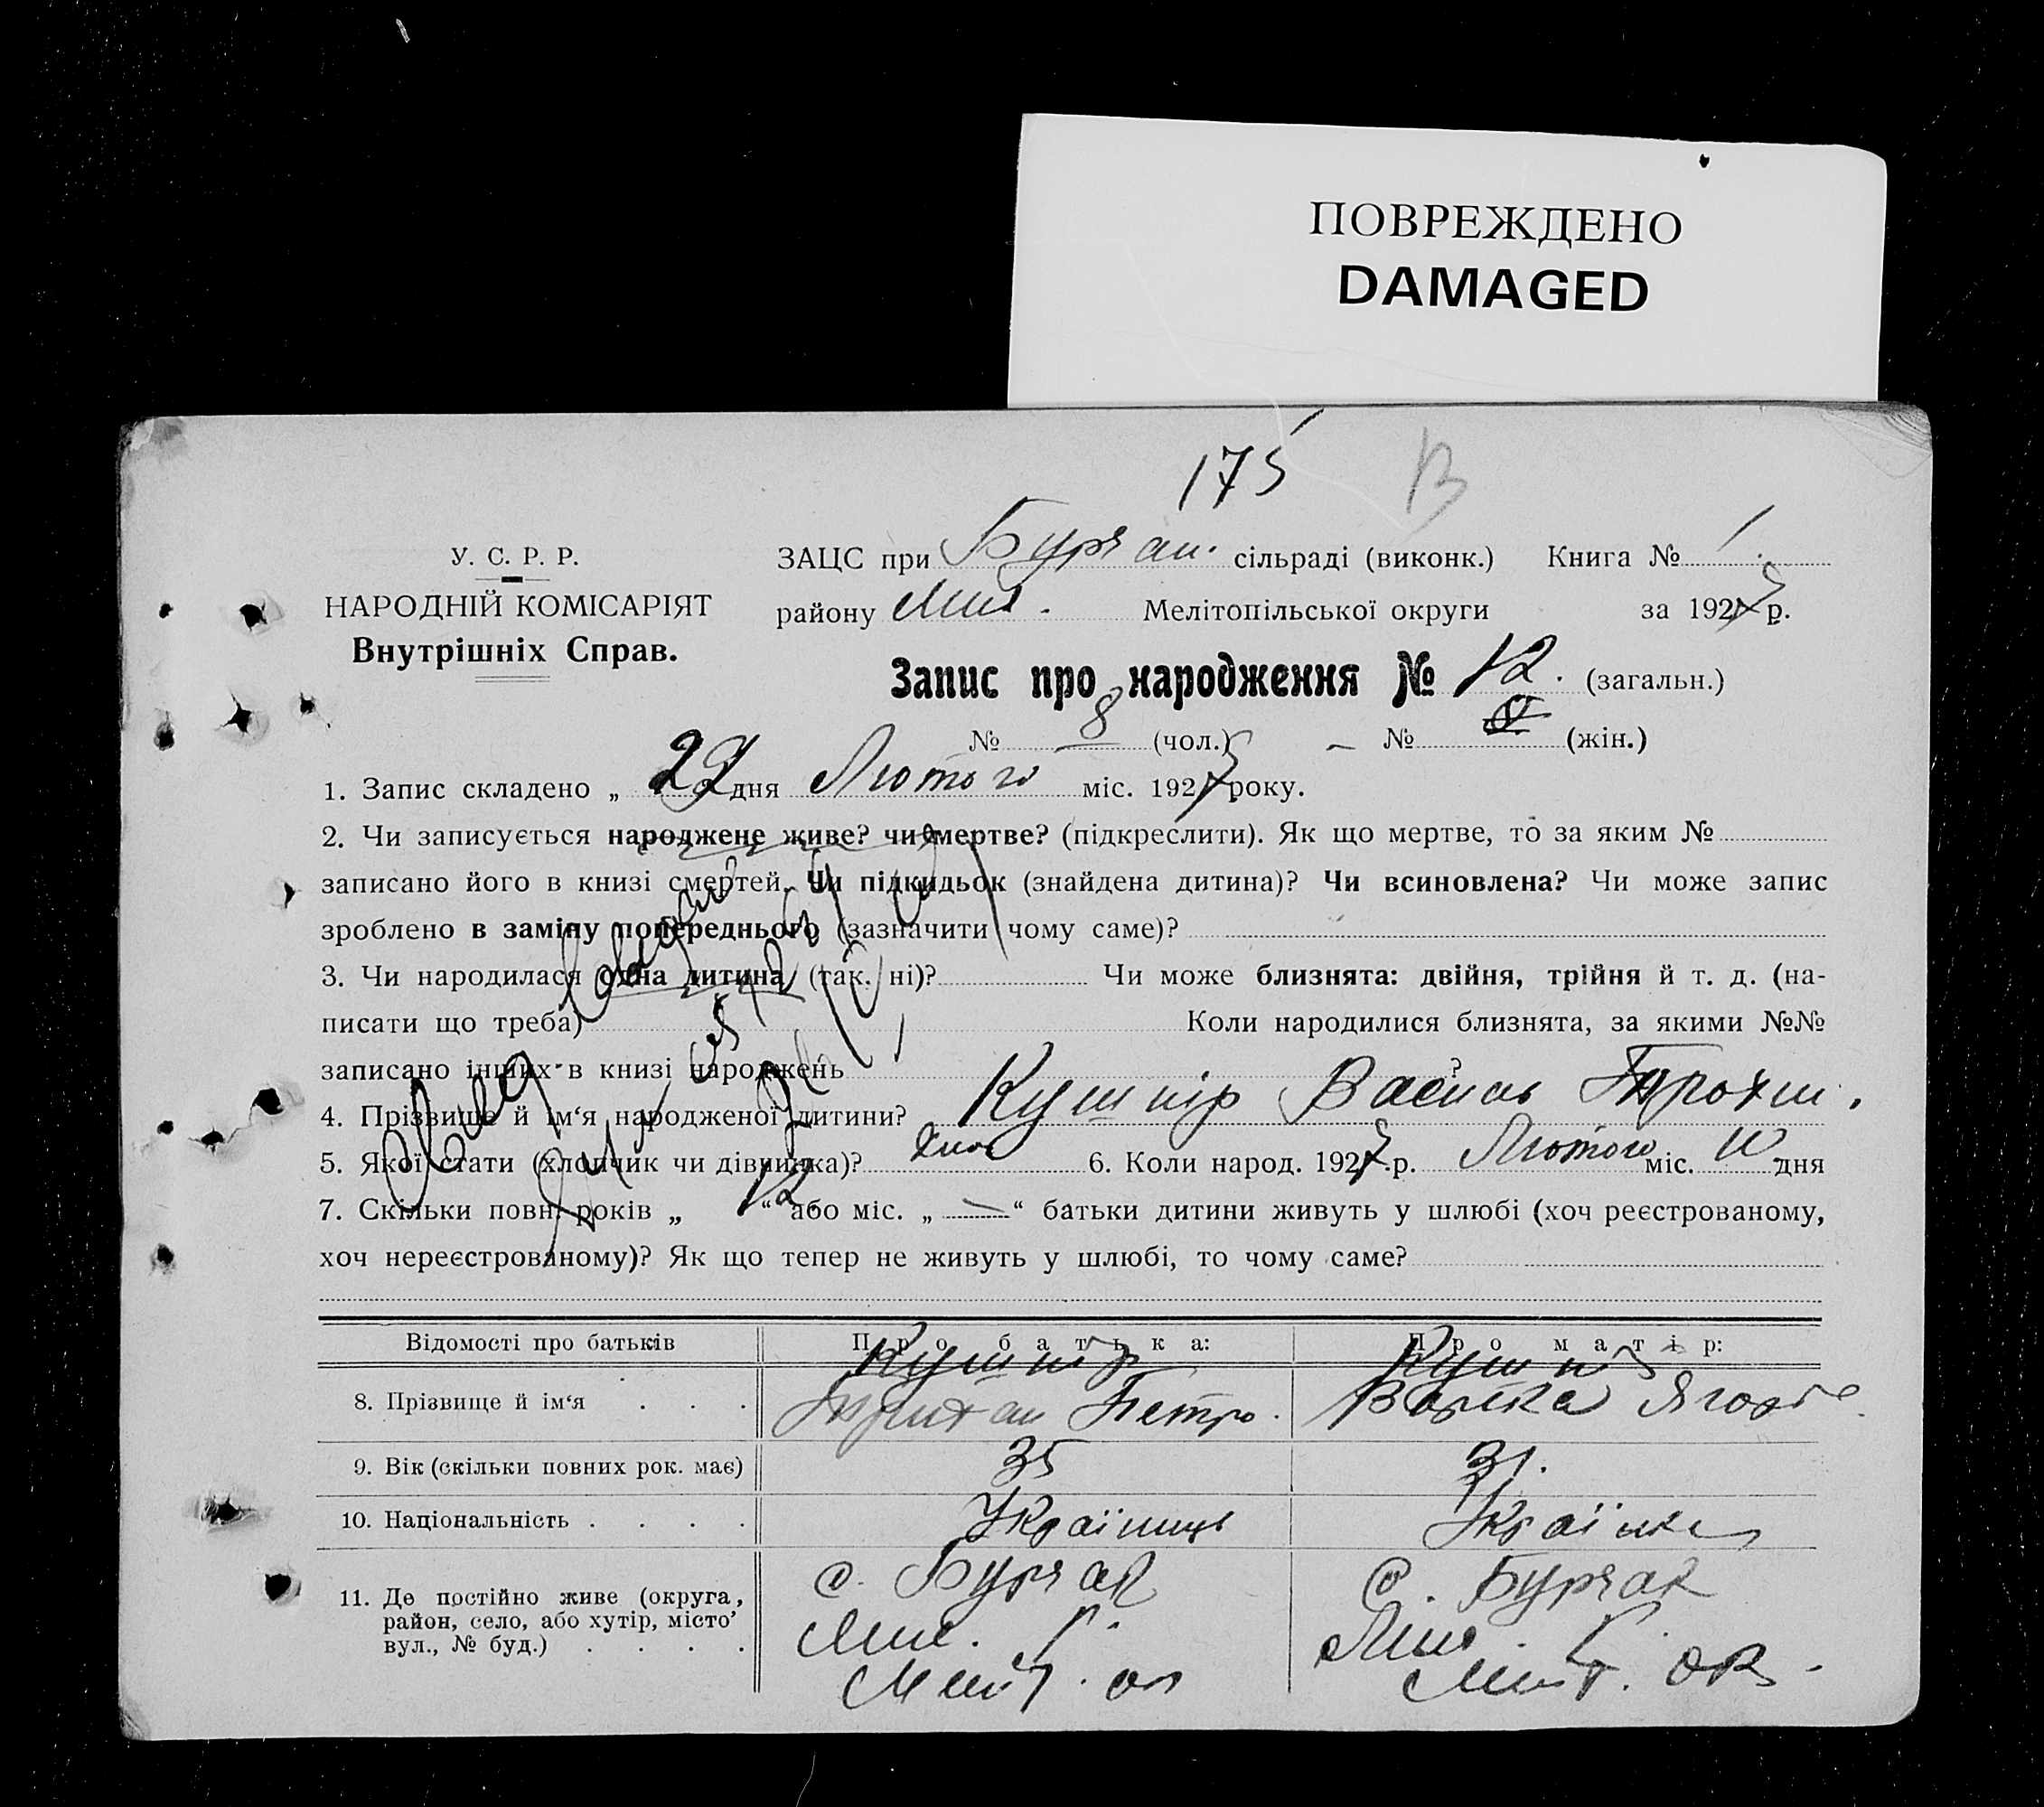 ПОВРЕЖДЕНО
DAMAGED
175
В
У. С. Р. Р.
НАРОДНІЙ КОМІСАРІЯТ
Внутрішніх Справ.
ЗАЦС при Бурчац. сільраді (виконк.) Книга № 1.
району Мих. Мелітопільської округи за 1927 р.
Запис про народження № 12. (загальн.)
№ 8 (чол.) — № (жін.)
1. Запис складено „ 22 дня Лютого міс. 1927 року.
2. Чи записується народжене живе? чи мертве? (підкреслити). Як що мертве, то за яким №
записано його в книзі смертей. Чи підкидьок (знайдена дитина)? Чи всиновлена? Чи може запис
зроблено в заміну попереднього (зазначити чому саме)?
3. Чи народилася одна дитина (так. ні)? Чи може близнята: двійня, трійня й т. д. (на-
писати що треба) Коли народилися близнята, за якими №№
записано інших в книзі народжень ?
4. Прізвище й ім‘я народженої дитини? Кушнір Василь
5. Якої стати (хлопчик чи дівчинка)? Хлоп 6. Коли народ. 1927 р. Лютого міс. 10 дня
7. Скільки повн. років „ 12 “ або міс. „ — “ батьки дитини живуть у шлюбі (хоч реєстрованому,
хоч нереєстрованому)? Як що тепер не живуть у шлюбі, то чому саме?
Відомості про батьків Про батька: Про матір:
Кушнір Кушнір
8. Прізвище й ім‘я . . . Петро. Варка
9. Вік (скільки повних рок. має) 35 31.
10. Національність . . . . Українець Українка
11. Де постійно живе (округа, с. Бурчак с. Бурчак
район, село, або хутір, місто’ Мих. р. Мих. р.
вул., № буд.) . . . . Меліт. ок Меліт. ок.